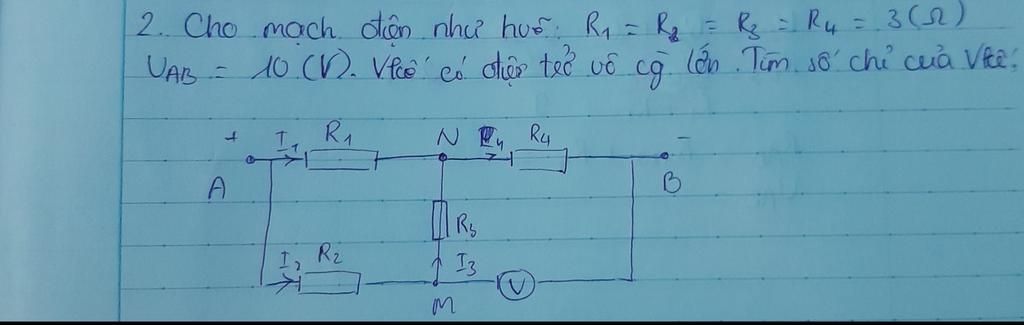 2. Cho mạch điện như hvẽ: R1 = R2 = R3 = R4 = 3(Ω)
UAB = 10 (V). Vkế có điện trở vô cg lớn. Tìm số chỉ của Vkế.
+ I1 R1 N I4 R4 -
A B
R3
I2 R2 I3
M V